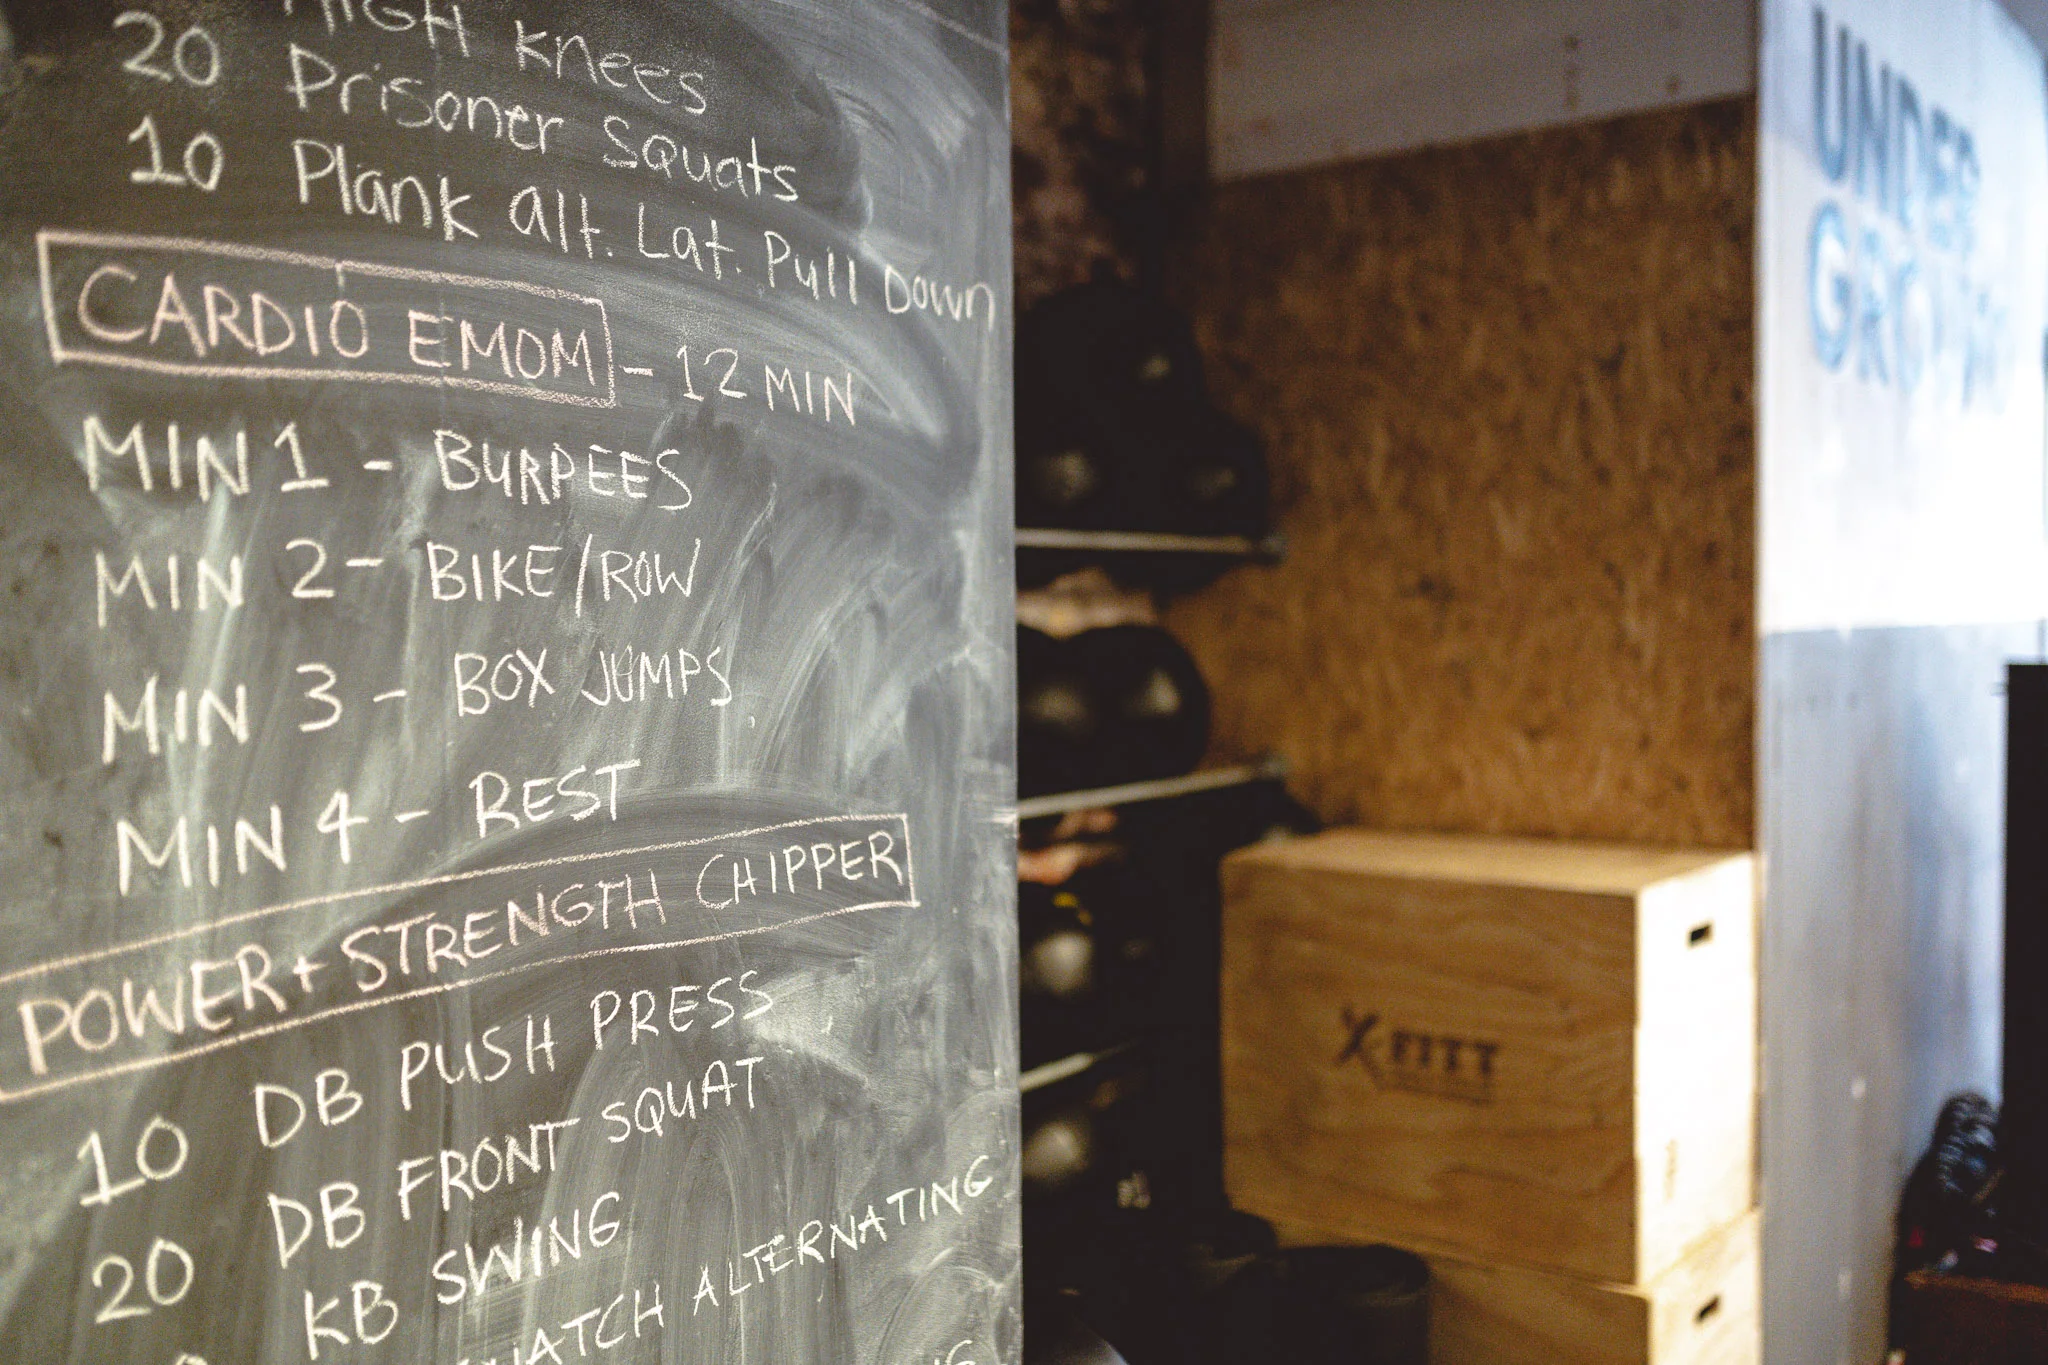 HIGH Knees
20 Prisoner Squats
10 Plank alt. Lat. Pull Down
CARDIO EMOM - 12 MIN
MIN 1 - BURPEES
MIN 2 - BIKE/ROW
MIN 3 - BOX JUMPS
MIN 4 - REST
POWER + STRENGTH CHIPPER
10 DB PUSH PRESS
20 DB FRONT SQUAT
KB SWING
ALTERNATING
UNDER
X-FITT